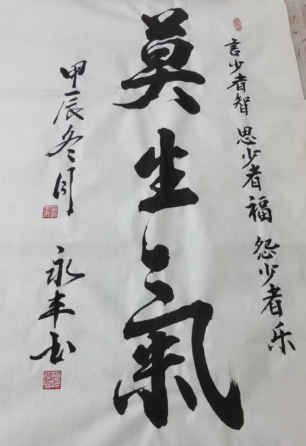 言少者智 思少者福 怨少者乐
莫生气
甲辰冬月
永丰书